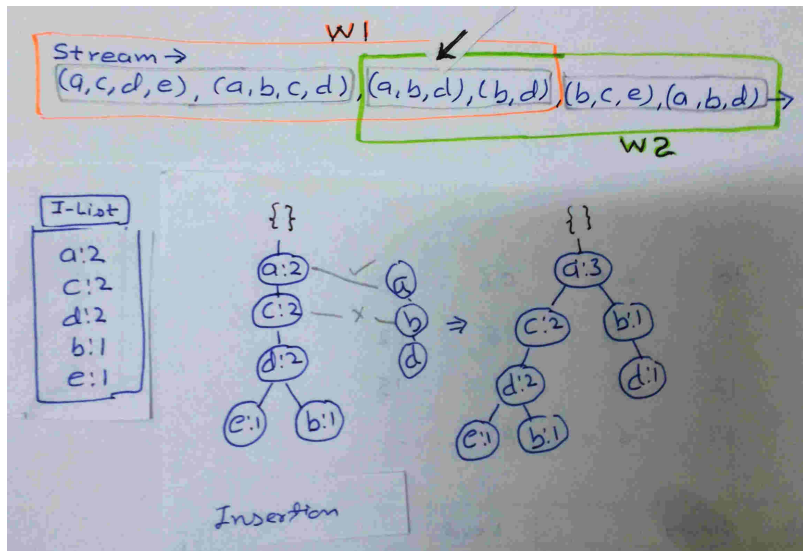 W1
Stream →
(a,c,d,e), (a,b,c,d), (a,b,d), (b,d), (b,c,e), (a,b,d) →
W2
I-List
a:2
c:2
d:2
b:1
e:1
{}
a:2
c:2
d:2
e:1 b:1
✓
x
a
b
d
⇒
{}
a:3
c:2 b:1
d:2 d:1
e:1 b:1
Insertion